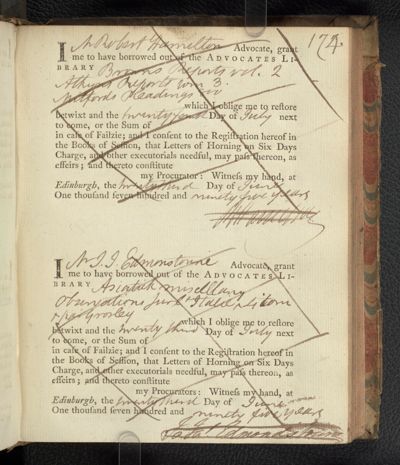 174.
I Mr Robert Hamilton Advocate, grant
me to have borrowed out of the ADVOCATES LI-
BRARY Browns Reports vol. 2
Atkyns Reports 3.
Mitfords Pleadings
which I oblige me to restore
betwixt and the twenty third Day of July next
to come, or the Sum of
in case of Failzie; and I consent to the Registration hereof in
the Books of Session, that Letters of Horning on Six Days
Charge, and other executorials needful, may pass thereon, as
effeirs; and thereto constitute
my Procurator: Witness my hand, at
Edinburgh, the twenty third Day of June
One thousand seven hundred and ninety five years
I Mr J. J. Edmonstoune Advocate, grant
me to have borrowed out of the ADVOCATES LI-
BRARY Asiatick miscellany
Observations
which I oblige me to restore
betwixt and the twenty third Day of July next
to come, or the Sum of
in case of Failzie; and I consent to the Registration hereof in
the Books of Session, that Letters of Horning on Six Days
Charge, and other executorials needful, may pass thereon, as
effeirs; and thereto constitute
my Procurators: Witness my hand, at
Edinburgh, the twenty third Day of June
One thousand seven hundred and ninety five years
Edmonstoune